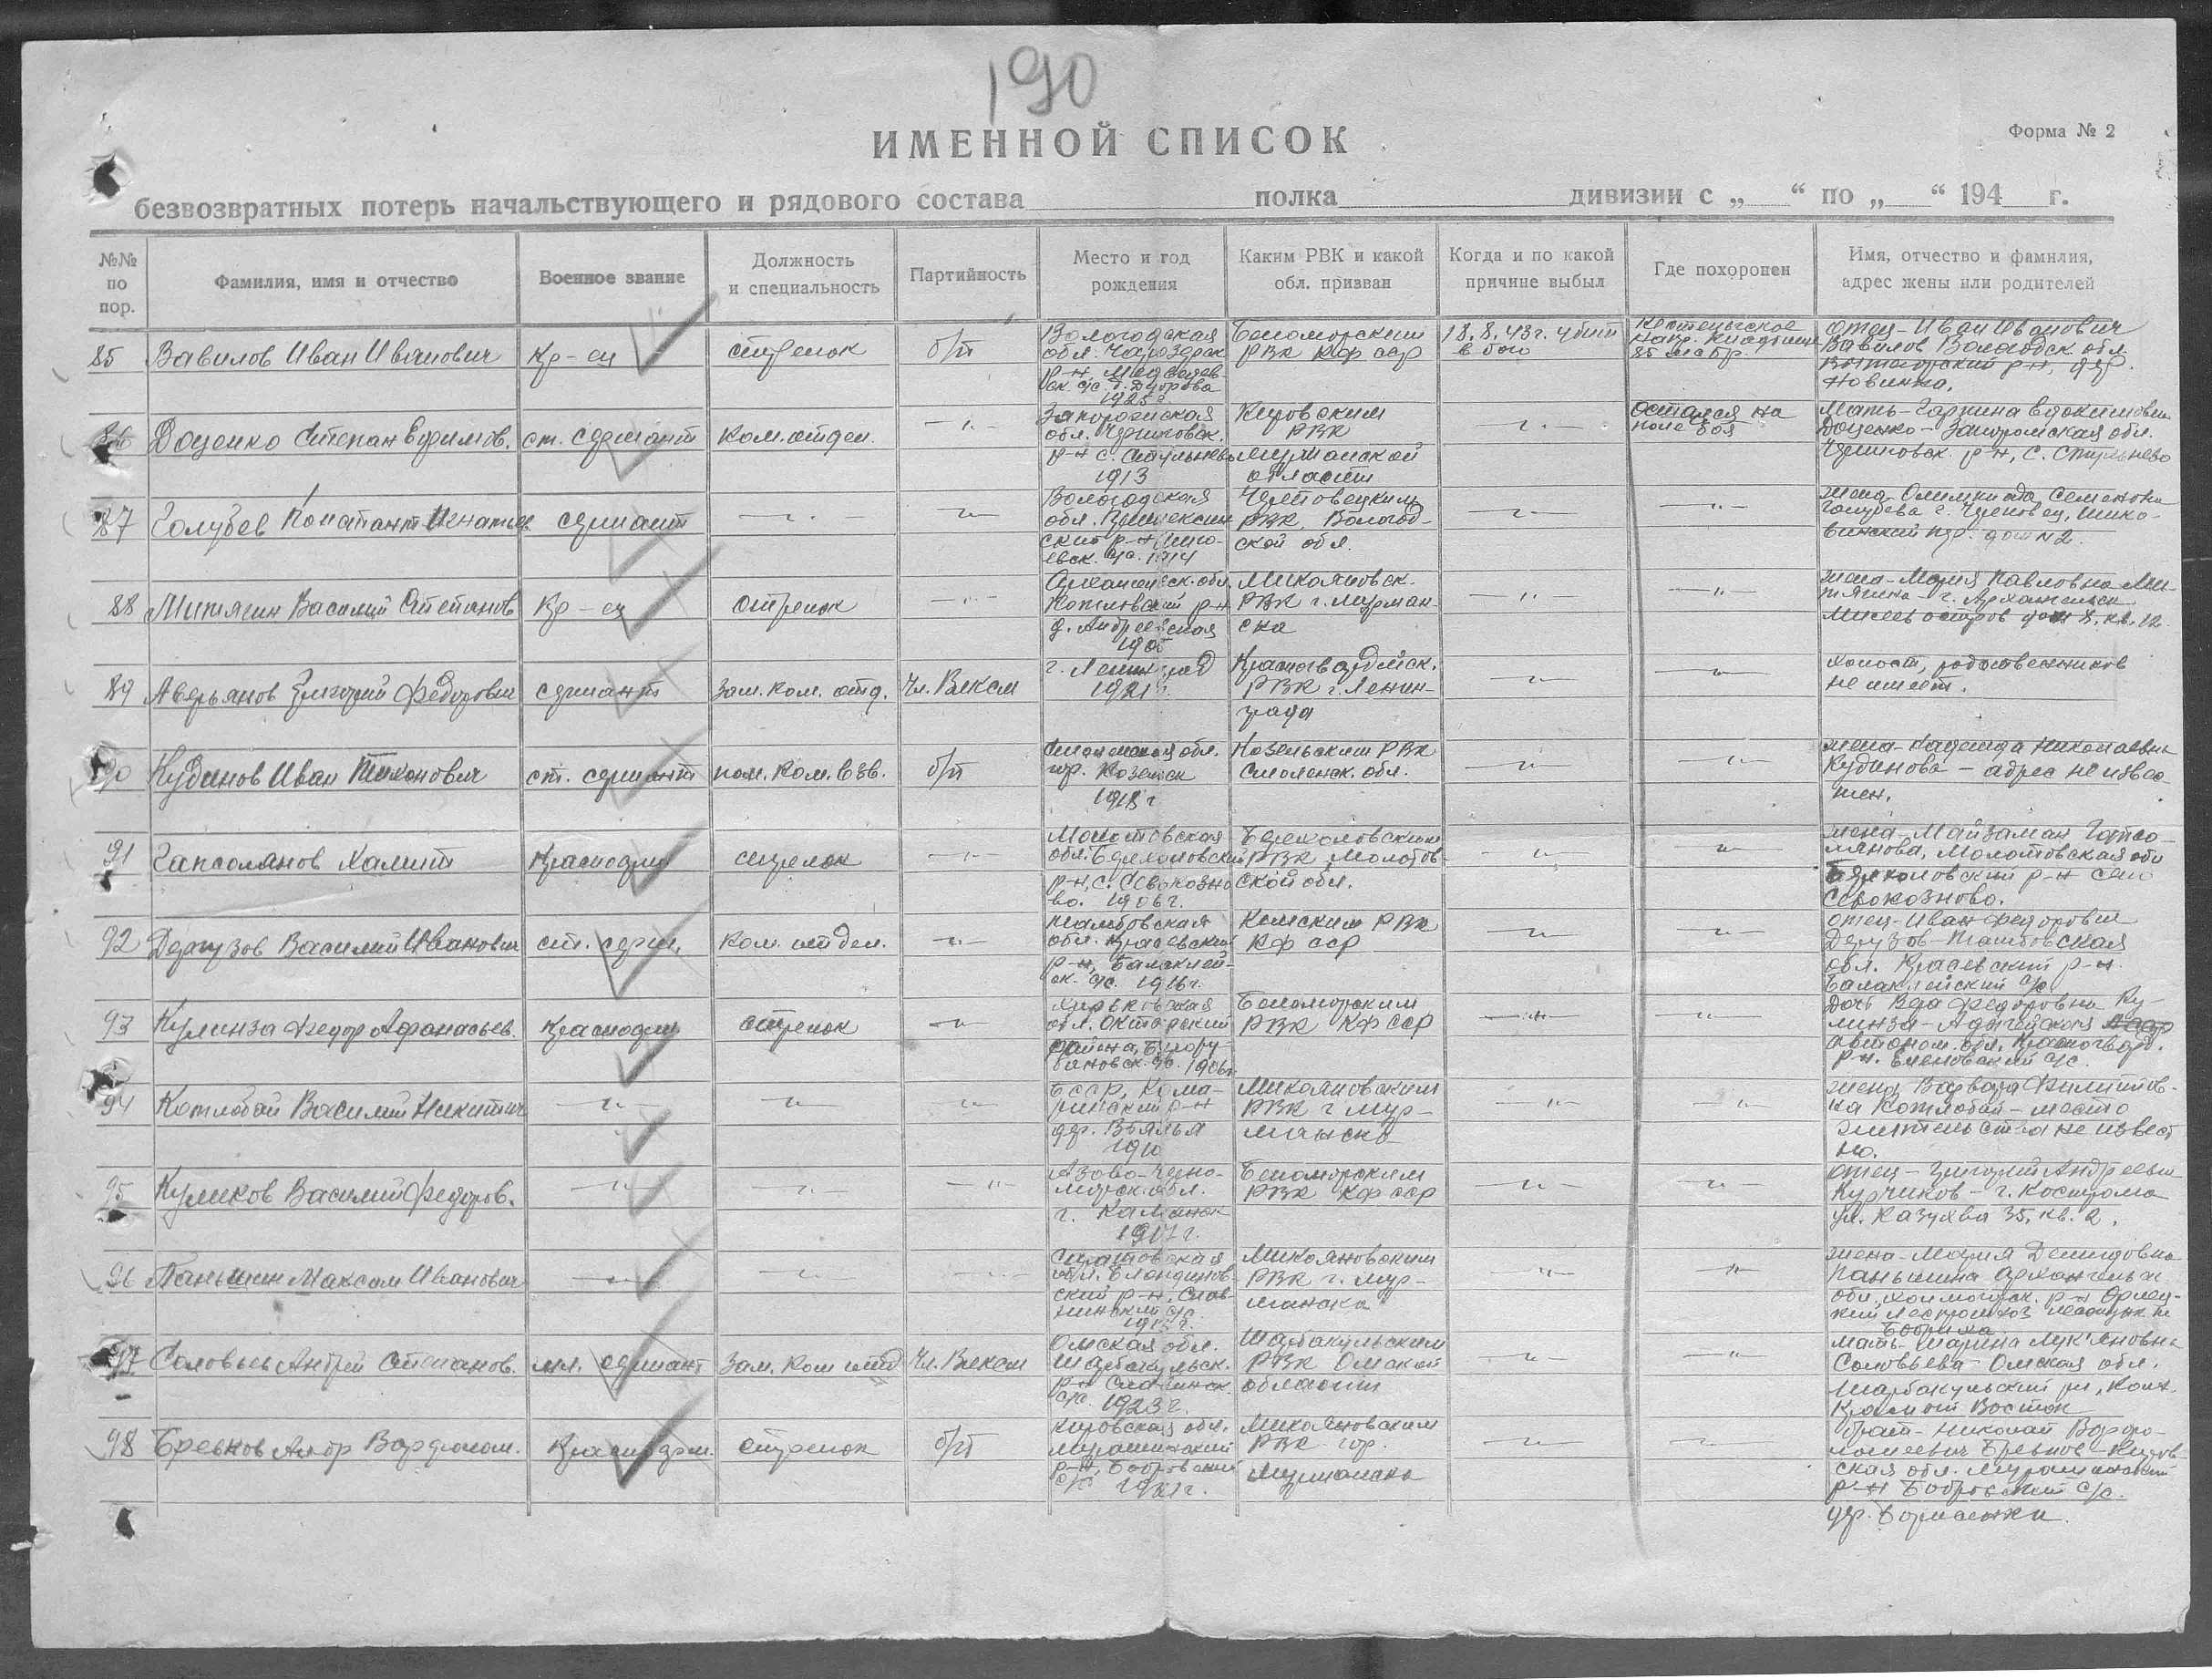 190
ИМЕННОЙ СПИСОК
Форма № 2
безвозвратных потерь начальствующего и рядового состава полка дивизии с „ “ по „ “ 194 г.
№№ по пор.
Фамилия, имя и отчество
Военное звание
Должность и специальность
Партийность
Место и год рождения
Каким РВК и какой обл. призван
Когда и по какой причине выбыл
Где похоронен
Имя, отчество и фамилия, адрес жены или родителей
85 Вавилов Иван Иванович
кр-ец
стрелок
б/п
Вологодская
обл. Чарозерск
1925 г.
Беломорским
РВК КФССР
18.8.43 г. убит
в бою
Кестеньгское
напр.
отец - Иван Иванович
Вавилов Вологодск. обл.
Вытегорский р-н, дер.
Новинка.
86 Доценко Степан Ефимов.
ст. сержант
ком. отдел.
-"-
Запорожская
обл. Черниговск.
р-н с.
1913
Кировским
РВК
Мурманской
области
-"-
остался на
поле боя
Мать - Евдокимовна
Доценко - Запорожская обл.
Черниговск. р-н, с.
87 Голубев Констант Игнатьев
сержант
-"-
-"-
Вологодская
обл.
ский р-н
1914
Череповецким
РВК, Вологод-
ской обл.
-"-
-"-
жена - Олимпиада Семеновна
Голубева г. Череповец,
дом № 2.
88 Митягин Василий Степанов
кр-ец
стрелок
-"-
Архангельск. обл.
Котласский р-н
д. Андреевская
Микояновск.
РВК г. Мурман-
ска
-"-
-"-
жена - Мария Павловна Ми-
тягина - г. Архангельск
остров дом 8, кв. 12
89 Аверьянов Григорий Федорович
сержант
зам. ком. отд.
Чл. ВЛКСМ
г. Ленинград
1921 г.
Красногвардейск.
РВК г. Ленин-
града
-"-
-"-
холост, родственников
не имеет.
90 Кудинов Иван Тихонович
ст. сержант
пом. ком. взв.
б/п
Смоленская обл.
гор. Козельск
1918 г.
Козельским РВК
Смоленск. обл.
-"-
-"-
жена - Надежда Николаевна
Кудинова - адрес не извес-
тен.
91 Гапсолянов Халит
красноарм
стрелок
-"-
Молотовская
р-н, с.
во. 1906 г.
РВК Молотов-
ской обл.
-"-
-"-
жена - Майзаман
Молотовская обл
р-н село
92 Дергузов Василий Иванович
ст. серж.
ком. отдел.
-"-
Тамбовская
обл.
р-н, Балаклей-
ск. с/с. 1916 г.
Кемским РВК
КФССР
-"-
-"-
отец - Иван Федорович
Дергузов - Тамбовская
обл. р-н.
Балаклейский с/с
93 Кулинза Федор Афанасьев.
красноарм
стрелок
-"-
Харьковская
района,
1906 г.
Беломорским
РВК КФССР
-"-
-"-
Дочь Вера Федоровна Ку-
линза - Адыгейская
автоном. обл. Красногвард.
р-н. Еленовский с/с.
94 Котлобай Василий Никитич
-"-
-"-
-"-
БССР, Кома-
ринский р-н
дер. Вялья
1910
Микояновским
РВК г. Мур-
манска
-"-
-"-
жена Варвара Филиппов-
на Котлобай - место
жительства не извест
но.
95 Куликов Василий Федоров.
-"-
-"-
-"-
Азово-Черно-
морск. обл.
г.
1907 г.
Беломорским
РВК КФССР
-"-
-"-
отец - Григорий Андреевич
г. Кострома
ул. 35, кв. 2.
96 Паньшин Максим Иванович
-"-
-"-
-"-
Саратовская
обл.
ский р-н,
Микояновским
РВК г. Мур-
манска
-"-
-"-
жена - Мария Демидовна
Паньшина Архангельск
обл. Холмогорск. р-н Орлец-
кий
97 Соловьев Андрей Степанов.
мл. сержант
зам. ком отд
Чл. ВЛКСМ
Омская обл.
Шарбакульск.
р-н
с/с. 1923 г.
Шарбакульским
РВК Омской
области
-"-
-"-
мать - Марина Лук'яновна
Соловьева - Омская обл.
Шарбакульский рн, колх.
Красный Восток
98 Бревнов Алдр Варфолом.
красноарм.
стрелок
б/п
Кировская обл.
Мурашинский
р-н, Бобровский
с/с
Микояновским
РВК гор.
Мурманска
-"-
-"-
брат - Николай Варфо-
ломеевич Бревнов - Киров-
ская обл. Мурашинский
р-н Бобровский с/с.
дер.